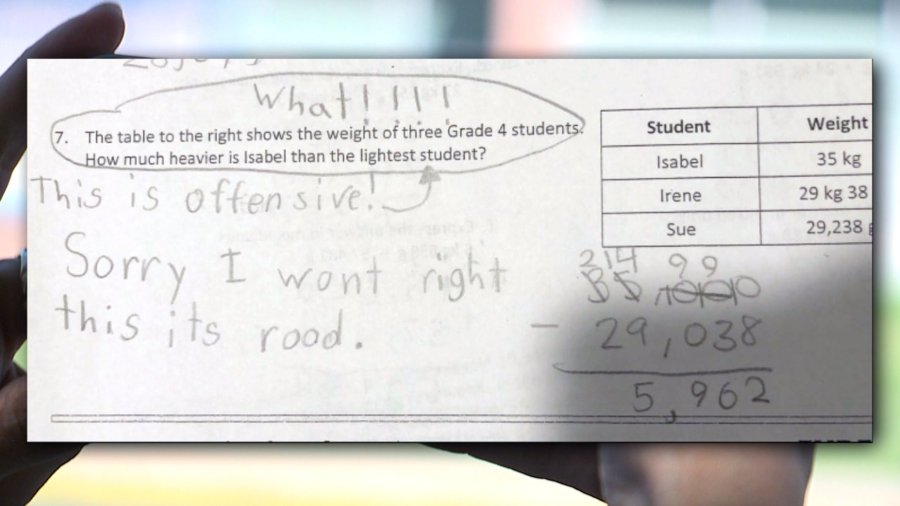 What!!!!!
7. The table to the right shows the weight of three Grade 4 students.
How much heavier is Isabel than the lightest student?
This is offensive!
Sorry I wont right
this its rood.
Student Weight
Isabel 35 kg
Irene 29 kg 38
Sue 29,238
2 14 9 9
35,000
- 29,038
5,962